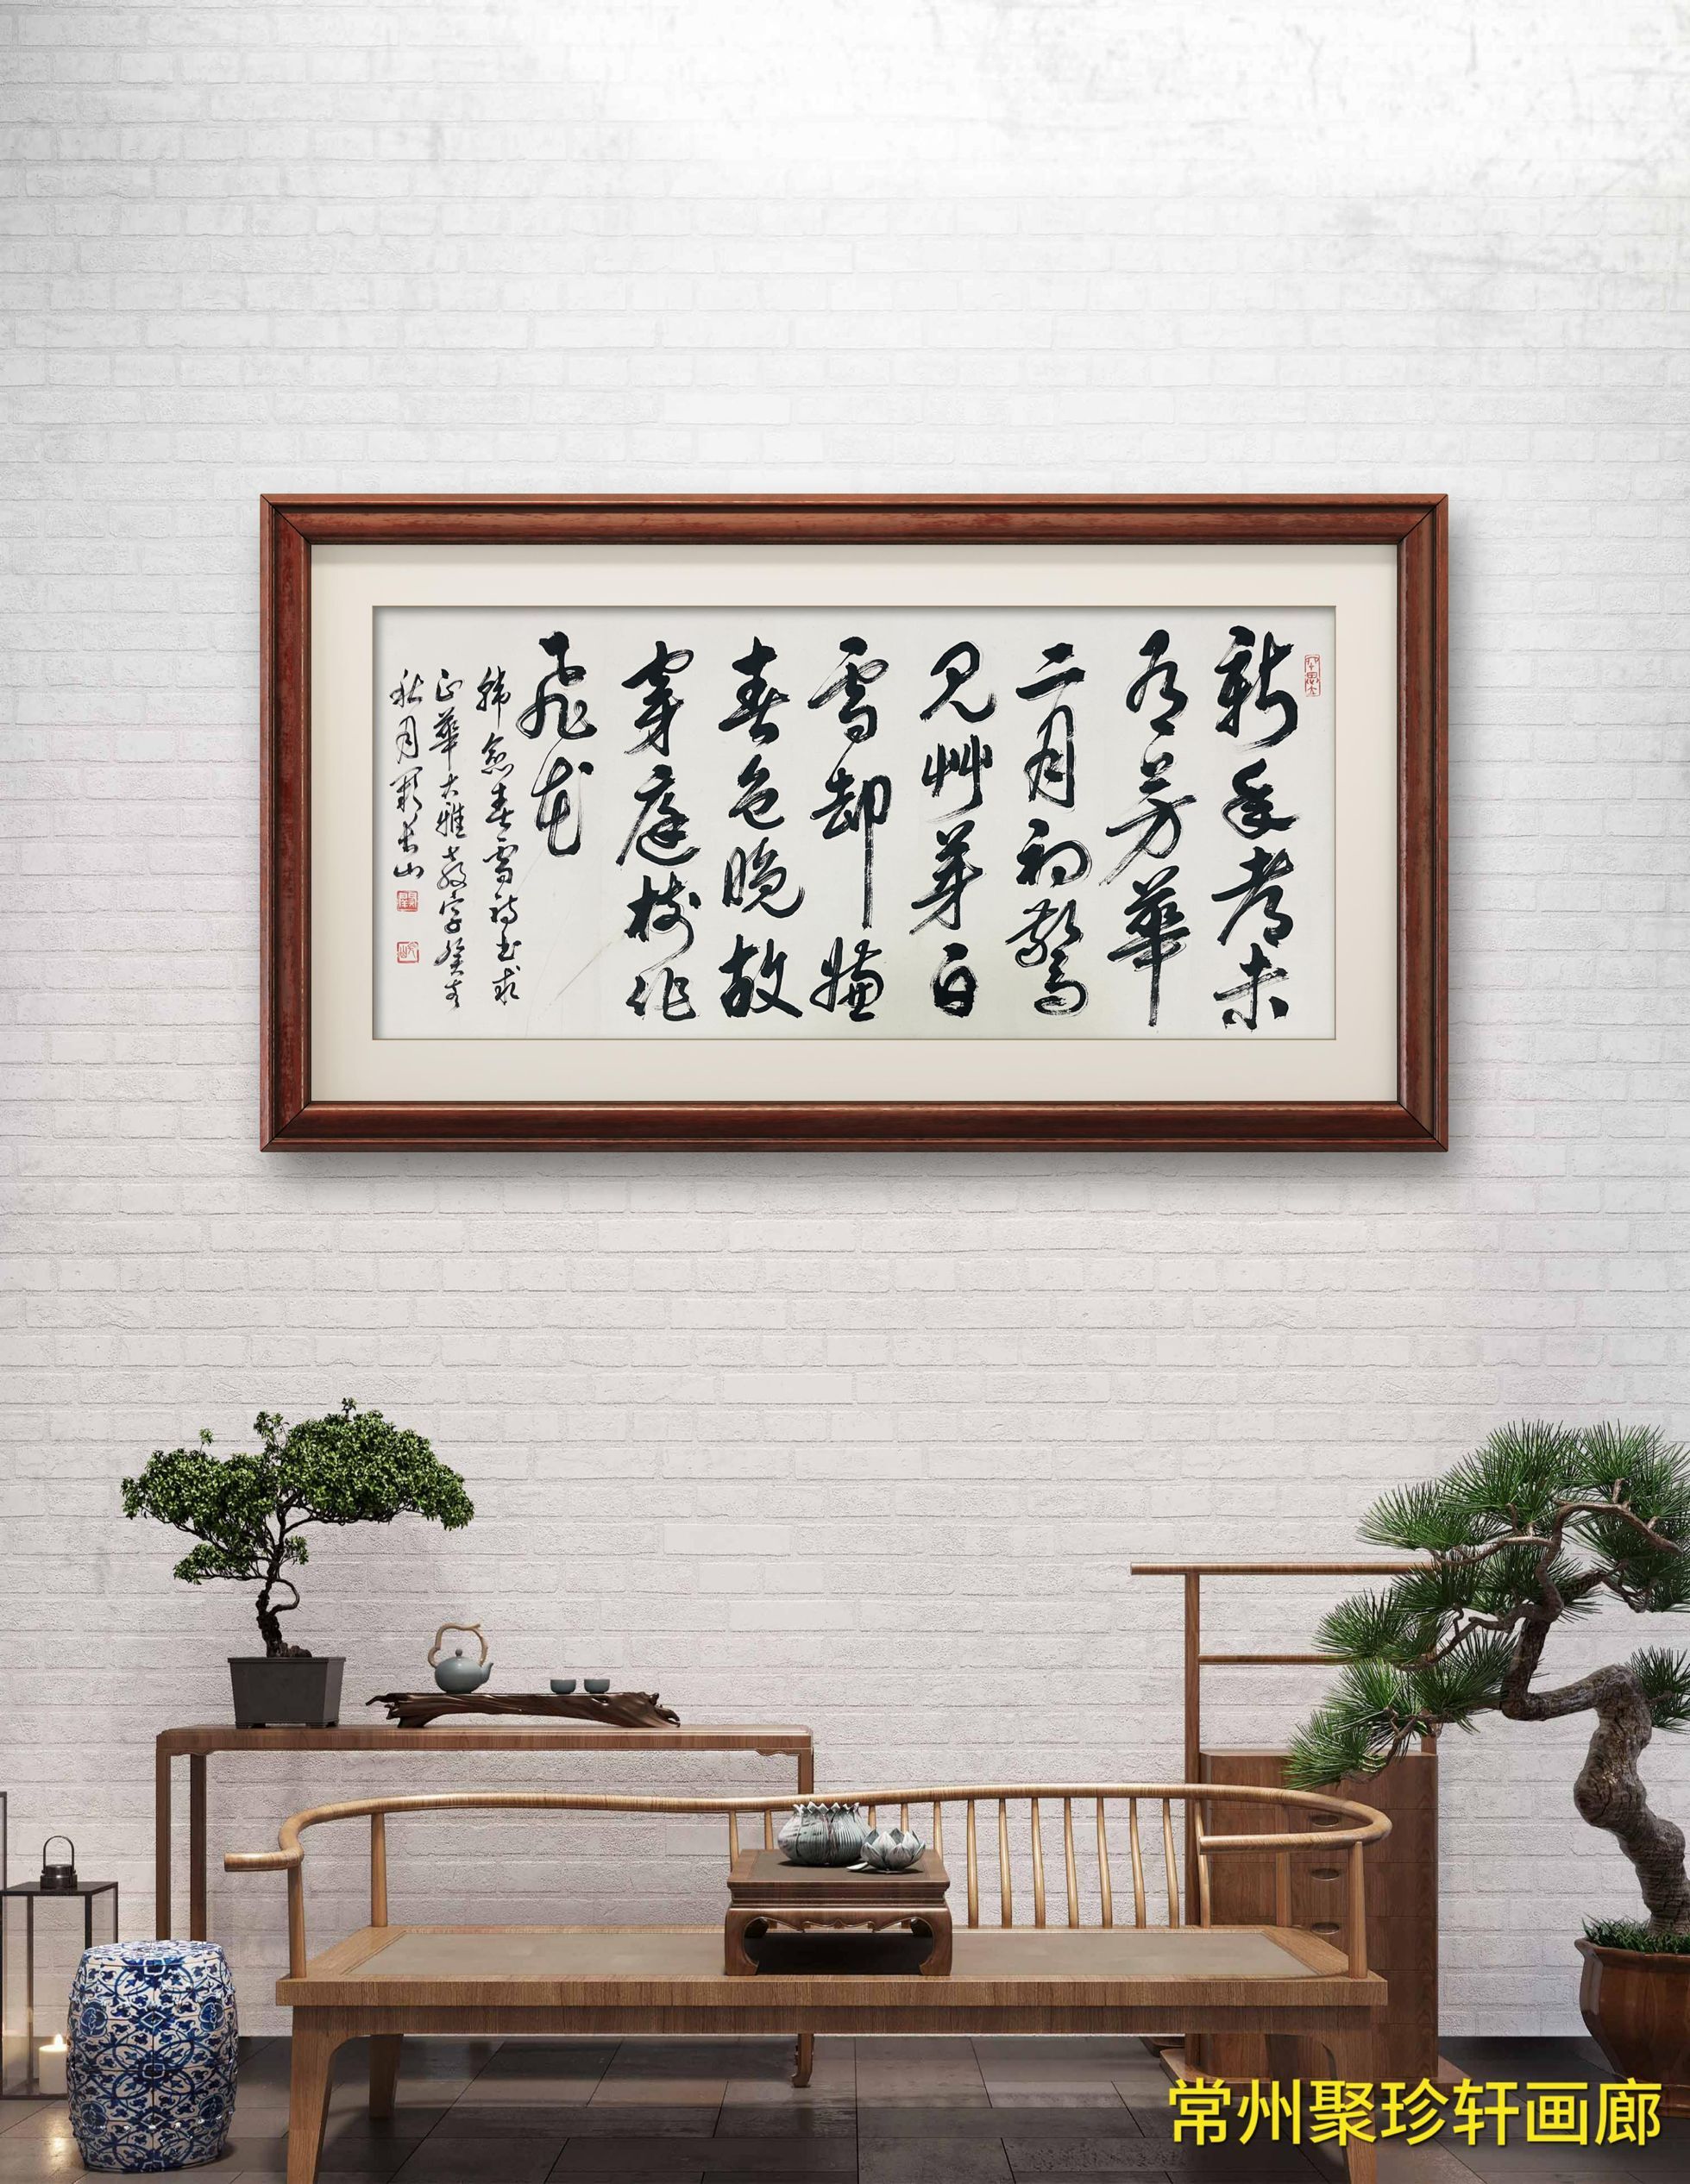 新年未
有芳華
二月初驚
見艸芽白
雪却嫌
春色晚故
穿庭樹作
飛花
韓愈春雪詩書求
正華大雅教字癸卯
秋月山
常州聚珍轩画廊